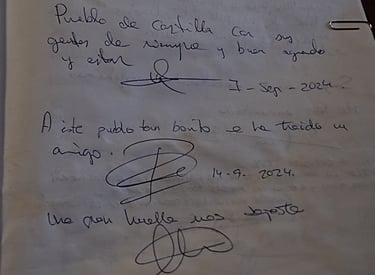 Pueblo de Castilla con sus
gentes de siempre y buen agrado
y estar
7 - Sep - 2024.
A este pueblo tan bonito e ha traido un
amigo.
14-9. 2024.
Una gran huella nos